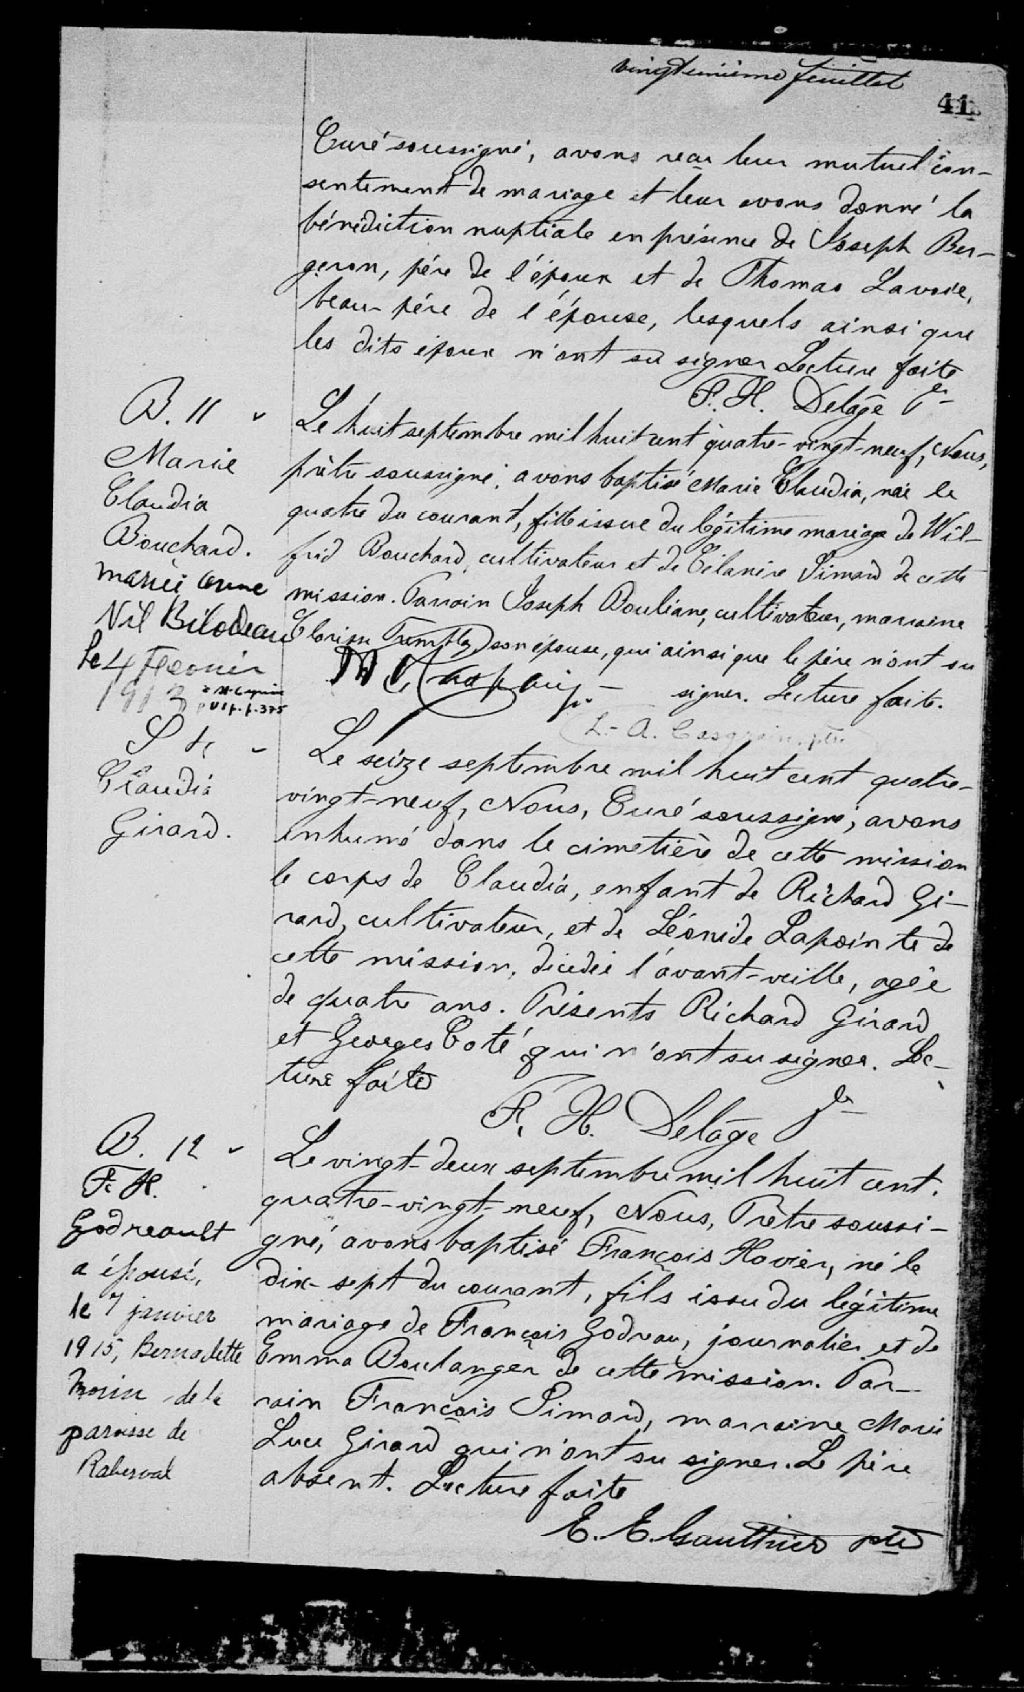 vingtunième feuillet
41
Curé soussigné, avons reçu leur mutuel con-
sentement de mariage et leur avons donné la
bénédiction nuptiale en présence de Joseph Ber-
geron, père de l'époux et de Thomas Lavoie,
beau-père de l'épouse, lesquels ainsi que
les dits époux n'ont su signer Lecture faite
F. H. Delâge Ptr
B. 11
Marie
Claudia
Bouchard.
mariée avec
Nil Bilodeau
le 4 Février
1913
p. 375
Le huit septembre mil huit cent quatre-vingt-neuf, Nous,
prêtre soussigné, avons baptisé Marie Claudia, née le
quatre du courant, fille issue du légitime mariage de Wil-
frid Bouchard, cultivateur et de Simard de cette
mission. Parrain Joseph Bouliane, cultivateur, marraine
Tremblay son épouse, qui ainsi que le père n'ont su
signer. Lecture faite.
L.-A. Casgrain, ptr.
S
Claudia
Girard.
Le seize septembre mil huit cent quatre-
vingt-neuf, Nous, Curé soussigné, avons
inhumé dans le cimetière de cette mission
le corps de Claudia, enfant de Richard Gi-
rard, cultivateur, et de Léonide Lapointe de
cette mission, décédée l'avant-veille, agée
de quatre ans. Présents Richard Girard
et Georges Coté qui n'ont su signer. Lec-
ture faite
F. H. Delâge Ptr
B. 12
F. H.
Godreault
a épousé,
le 7 janvier
1915, Bernadette
Morin de la
paroisse de
Roberval
Le vingt-deux septembre mil huit cent.
quatre-vingt-neuf, Nous, Prêtre soussi-
gné, avons baptisé François Havier, né le
dix-sept du courant, fils issu du légitime
mariage de François Godreau, journalier et de
Emma Boulanger de cette mission. Par-
rain François Simard, marraine Marie
Luce Girard qui n'ont su signer. Le père
absent. Lecture faite
E. E. Gauthier ptre